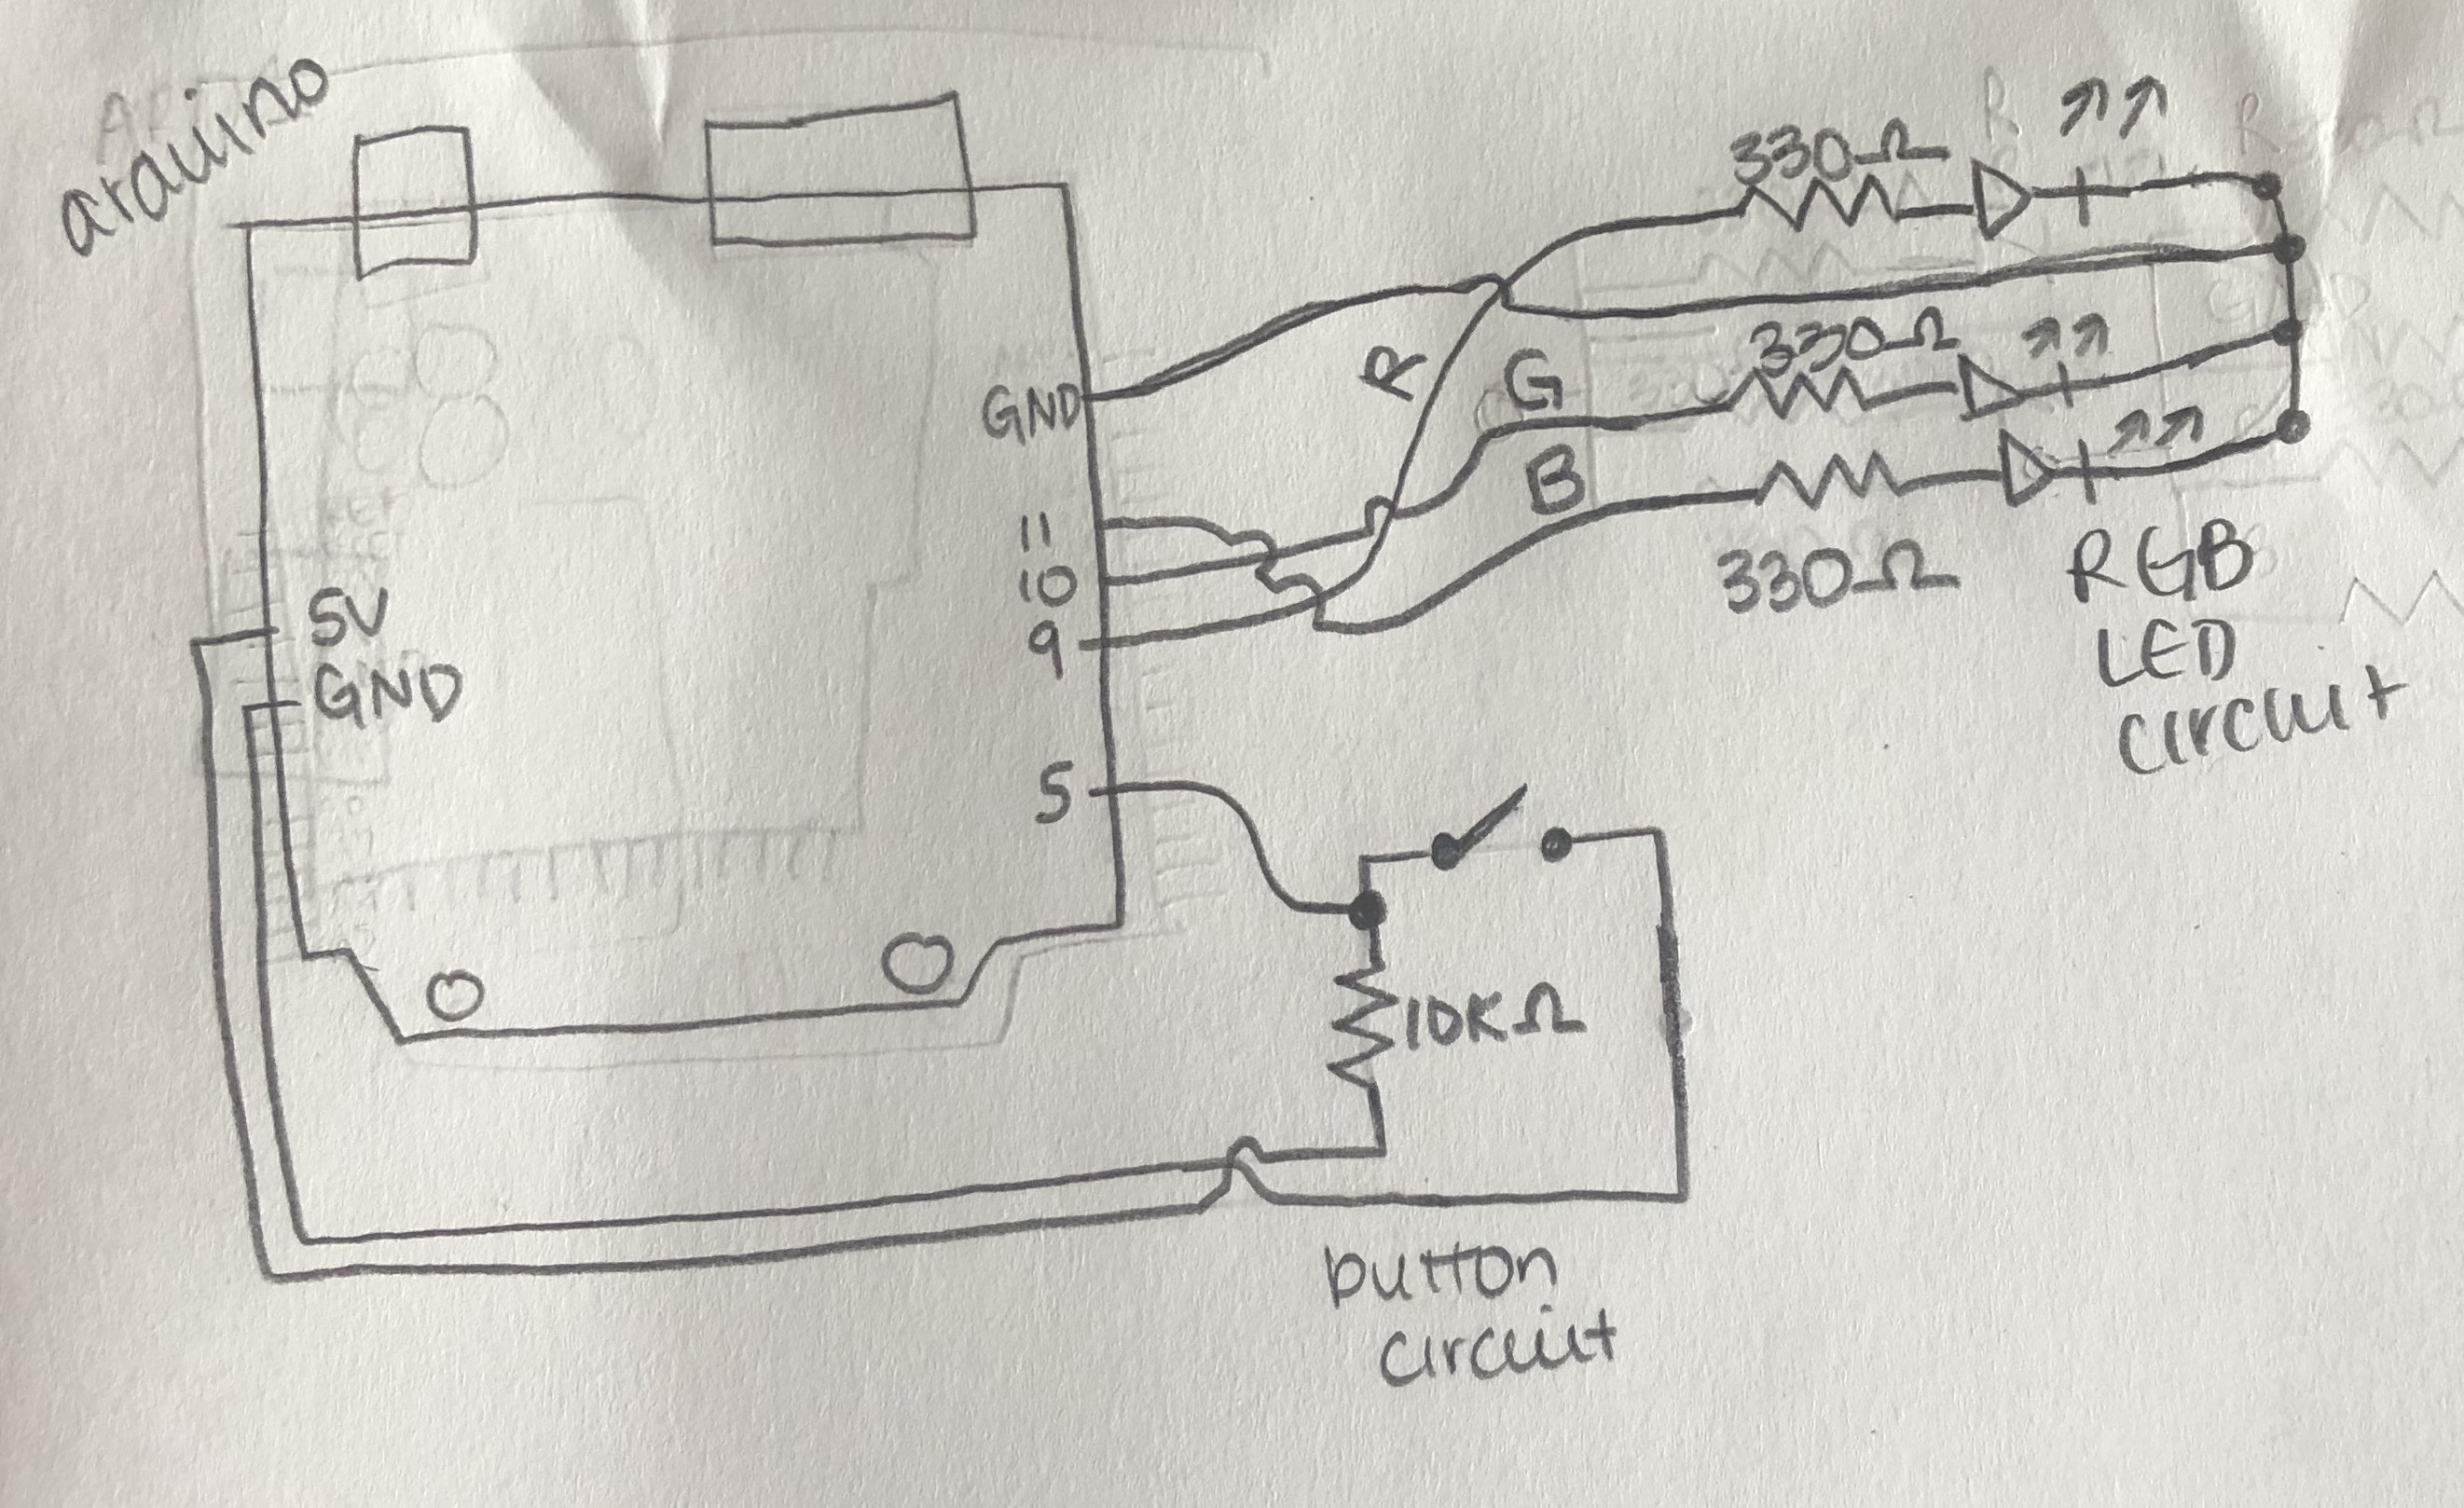 arduino
GND
11
10
9
5V
GND
5
R
G
B
330Ω
330Ω
330Ω
RGB
LED
circuit
10KΩ
button
circuit